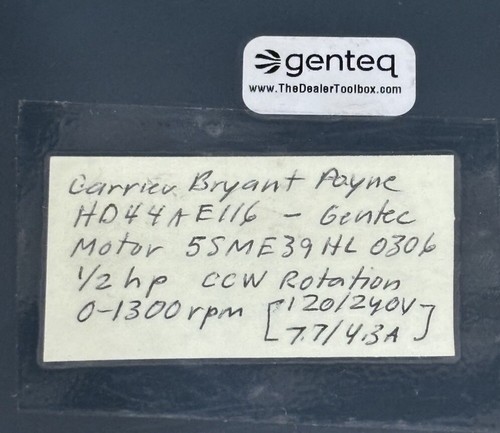 genteq
www.TheDealerToolbox.com
Carrier Bryant Payne
HD44AE116 - Gentec
Motor 5SME39HL0306
1/2 hp CCW Rotation
0-1300rpm [120/240V
7.7/4.3A]